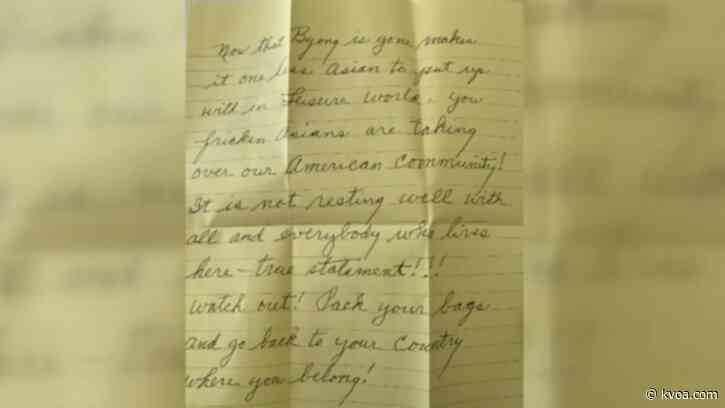 Now that Byong is gone makes
it one less Asian to put up
with in Leisure World. You
frickin Asians are taking
over our American Community!
It is not resting well with
all and everybody who lives
here - true statement!!!
Watch out! Pack your bags
and go back to your Country
where you belong!
© kvoa.com